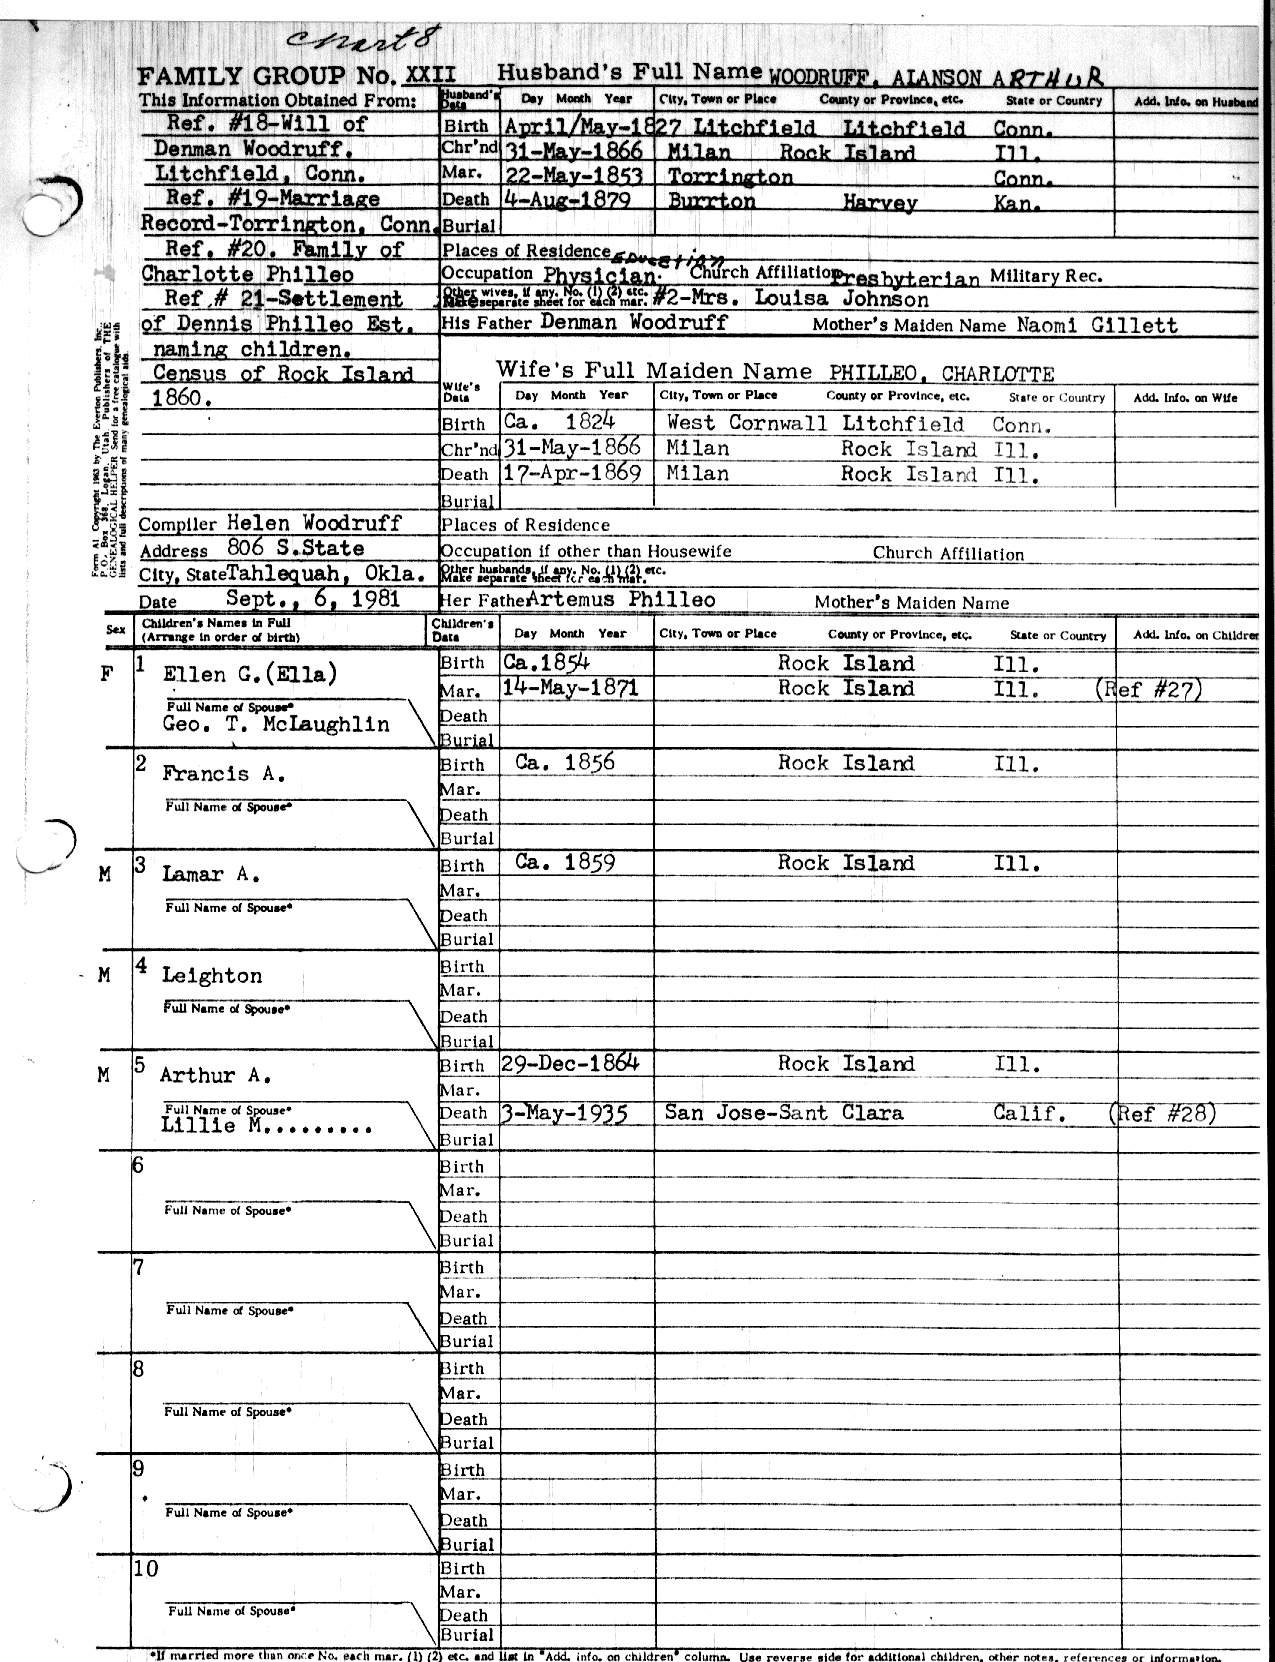 chart 8
FAMILY GROUP No. XXII Husband's Full Name WOODRUFF, ALANSON ARTHUR
This Information Obtained From: Husband's Data Day Month Year City, Town or Place County or Province, etc. State or Country Add. Info. on Husband
Ref. #18-Will of Birth April/May-1827 Litchfield Litchfield Conn.
Denman Woodruff. Chr'nd 31-May-1866 Milan Rock Island Ill.
Litchfield, Conn. Mar. 22-May-1853 Torrington Conn.
Ref. #19-Marriage Death 4-Aug-1879 Burrton Harvey Kan.
Record-Torrington, Conn. Burial
Ref. #20. Family of Places of Residence
Charlotte Philleo Occupation Physician. Church Affiliation Presbyterian Military Rec.
Ref.# 21-Settlement Other wives, if any. No. (1) (2) etc. Make separate sheet for each mar. #2-Mrs. Louisa Johnson
of Dennis Philleo Est. His Father Denman Woodruff Mother's Maiden Name Naomi Gillett
naming children.
Census of Rock Island Wife's Full Maiden Name PHILLEO, CHARLOTTE
1860. Wife's Data Day Month Year City, Town or Place County or Province, etc. State or Country Add. Info. on Wife
Birth Ca. 1824 West Cornwall Litchfield Conn.
Chr'nd 31-May-1866 Milan Rock Island Ill.
Death 17-Apr-1869 Milan Rock Island Ill.
Burial
Form A1 Copyright 1963 by The Everton Publishers, Inc.,
P.O. Box 368, Logan, Utah. Publishers of THE
GENEALOGICAL HELPER. Send for a free catalogue with
lists and full descriptions of many genealogical aids.
Compiler Helen Woodruff Places of Residence
Address 806 S.State Occupation if other than Housewife Church Affiliation
City, State Tahlequah, Okla. Other husbands, if any. No. (1) (2) etc. Make separate sheet for each mar.
Date Sept., 6, 1981 Her Father Artemus Philleo Mother's Maiden Name
Sex Children's Names in Full (Arrange in order of birth) Children's Data Day Month Year City, Town or Place County or Province, etc. State or Country Add. Info. on Children
F 1 Ellen G.(Ella) Birth Ca.1854 Rock Island Ill.
Mar. 14-May-1871 Rock Island Ill. (Ref #27)
Full Name of Spouse* Death
Geo. T. McLaughlin Burial
2 Francis A. Birth Ca. 1856 Rock Island Ill.
Mar.
Full Name of Spouse* Death
Burial
M 3 Lamar A. Birth Ca. 1859 Rock Island Ill.
Mar.
Full Name of Spouse* Death
Burial
M 4 Leighton Birth
Mar.
Full Name of Spouse* Death
Burial
M 5 Arthur A. Birth 29-Dec-1864 Rock Island Ill.
Mar.
Full Name of Spouse* Death 3-May-1935 San Jose-Sant Clara Calif. (Ref #28)
Lillie M......... Burial
6 Birth
Mar.
Full Name of Spouse* Death
Burial
7 Birth
Mar.
Full Name of Spouse* Death
Burial
8 Birth
Mar.
Full Name of Spouse* Death
Burial
9 Birth
Mar.
Full Name of Spouse* Death
Burial
10 Birth
Mar.
Full Name of Spouse* Death
Burial
*If married more than once No. each mar. (1) (2) etc. and list in "Add. info. on children" column. Use reverse side for additional children, other notes, references or information.